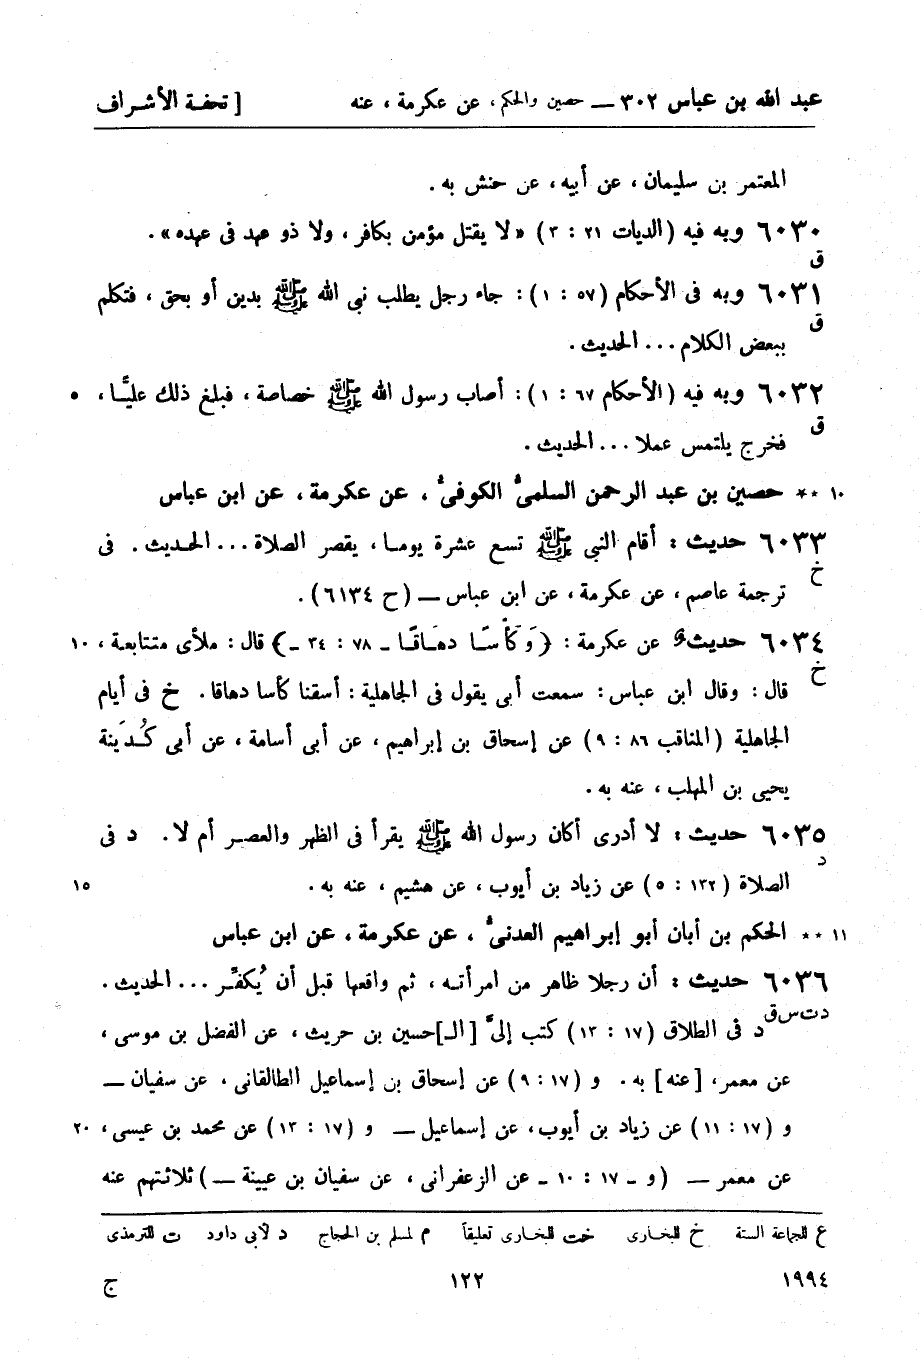 عبد الله بن عباس ٣٠٢ — حصين والحكم، عن عكرمة، عنه [ تحفة الأشراف
المعتمر بن سليمان، عن أبيه، عن حنش به.
٦٠٣٠ وبه فيه (الديات ٢١ : ٣) «لا يقتل مؤمن بكافر، ولا ذو عهد فى عهده».
ق
٦٠٣١ وبه فى الأحكام (٥٧ : ١): جاء رجل يطلب نبى الله ﷺ بدين أو بحق، فتكلم
ق
ببعض الكلام... الحديث.
٦٠٣٢ وبه فيه (الأحكام ٦٧ : ١): أصاب رسول الله ﷺ خصاصة، فبلغ ذلك عليًّا، ٥
ق
فخرج يلتمس عملا... الحديث.
١٠ ** حصين بن عبد الرحمن السلمىُّ الكوفىُّ، عن عكرمة، عن ابن عباس
٦٠٣٣ حديث : أقام النبى ﷺ تسع عشرة يومـا، يقصر الصلاة... الحـديث. فى
خ
ترجمة عاصم، عن عكرمة، عن ابن عباس — (ح ٦١٣٤).
٦٠٣٤ حديث عن عكرمة: ﴿وَكَأْسًـا دهَـاقًـا - ٧٨ : ٣٤ -﴾ قال: ملأى متتابعة، ١٠
خ
قال: وقال ابن عباس: سمعت أبى يقول فى الجاهلية: أسقنا كأسا دهاقا. خ فى أيام
الجاهلية (المناقب ٨٦ : ٩) عن إسحاق بن إبراهيم، عن أبى أسامة، عن أبى كُـدَينة
يحيى بن المهلب، عنه به.
٦٠٣٥ حديث : لا أدرى أكان رسول الله ﷺ يقرأ فى الظهر والعصـر أم لا. د فى
د
الصلاة (١٣٢ : ٥) عن زياد بن أيوب، عن هشيم، عنه به. ١٥
١١ ** الحكم بن أبان أبو إبراهيم العدنىُّ، عن عكرمة، عن ابن عباس
٦٠٣٦ حديث : أن رجلا ظاهر من امرأتـه، ثم واقعها قبل أن يُكفِّـر... الحديث.
د ت س ق
د فى الطلاق (١٧ : ١٣) كتب إلىَّ [الـ]حسين بن حريث، عن الفضل بن موسى،
عن معمر، [عنه] به. و (١٧ : ٩) عن إسحاق بن إسماعيل الطالقانى، عن سفيان —
و (١٧ : ١١) عن زياد بن أيوب، عن إسماعيل — و (١٧ : ١٣) عن محمد بن عيسى، ٢٠
عن معمر — (و - ١٧ : ١٠ - عن الزعفرانى، عن سفيان بن عيينة —) ثلاثتهم عنه
ع للجماعة الستة خ للبخـارى خت للبخارى تعليقاً م لمسلم بن الحجاج د لأبى داود ت للترمذى
١٩٩٤ ١٢٢ ج